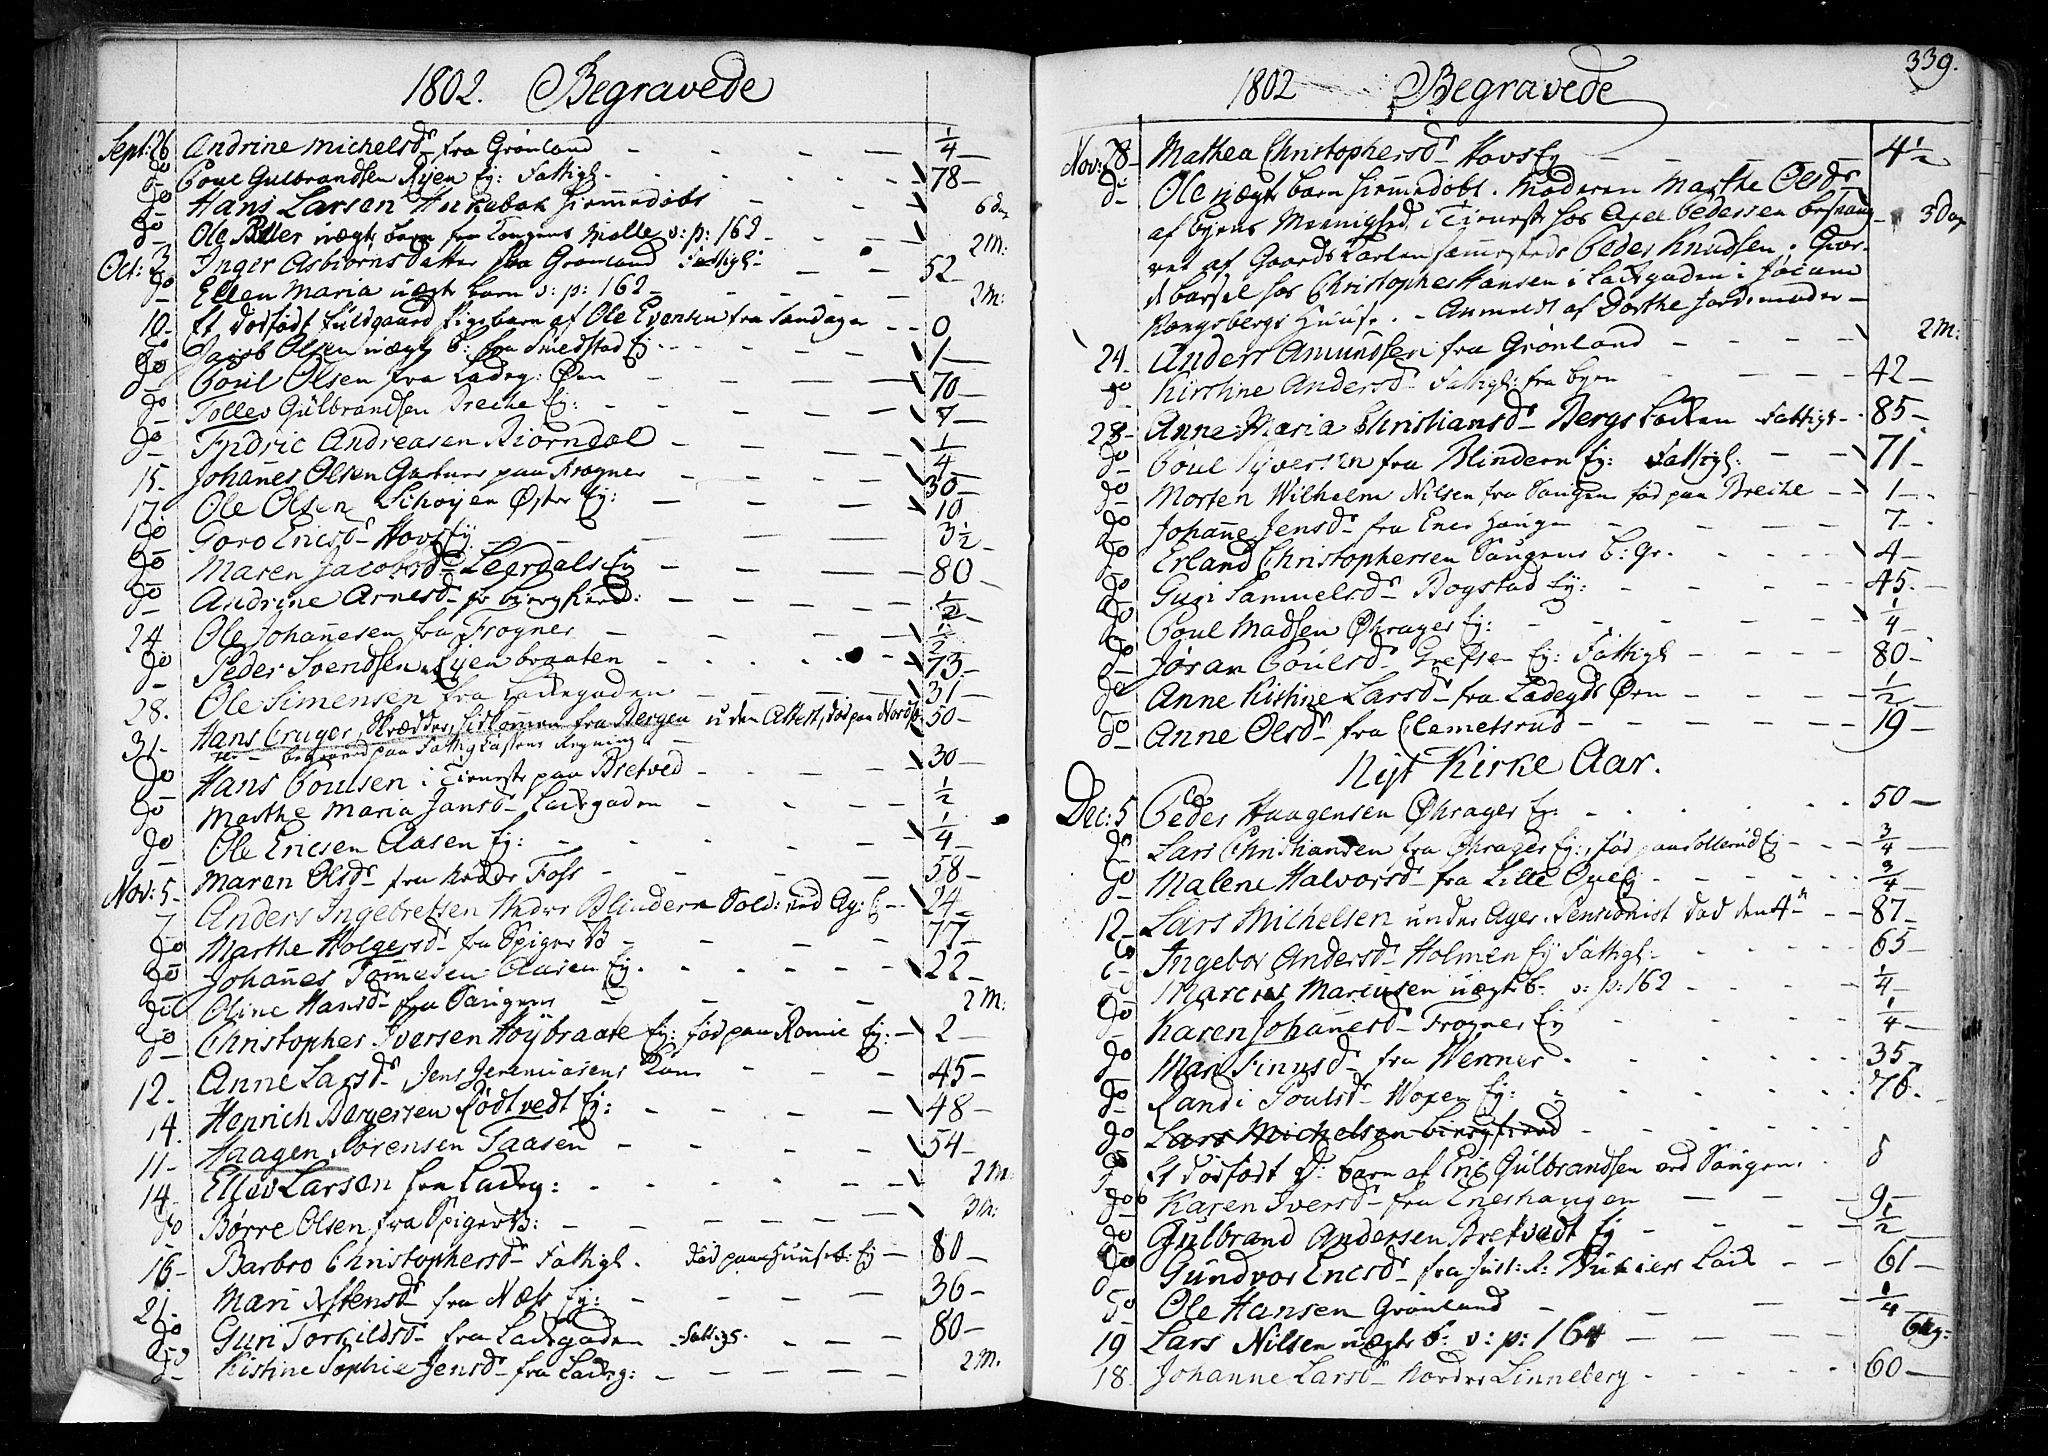 1802. Begravede
Sept: 26 Andrine Michelsd fra Grønland ¼
do Poul Gulbrandsen Ryen Ej: Fattigl. 78
do Hans Larsen hiemmedøbt 6
do Ole uægt barn fra Kongens Mølle v: p: 162 2 M:
Oct: 3 Inger Asbiørnsdatter fra Grønland Fattigl 52
do Ellen Maria uægt barn v: p: 162 2 M:
10 Et dødfødt fuldgaaed Pigebarn af Ole Evensen fra 0
do Jacob Olsen uægt b: fra Smedstad Ej 1
do Poul Olsen fra Ladeg: Øen 70
do Tollev Gulbrandsen Breche Ej: 7
do Fridric Andreasen Biørndal ¼
15 Johannes Olsen Gartner paa Frogner 30
17 Ole Olsen Lihøyen Øster Ej: 10
do Goro Ericsd Hovs Ej 3½
do Maren Jacobsd Leerdals Ej 80
do Andrine Arnesd ½
24 Ole Johannesen fra Frogner ½
do Peder Svendsen Ryenbraaten 73
28. Ole Simensen fra Lakkegaden 31
31 Hans Cruger, Skrædder, hidkommen fra Bergen uden Attest, død paa 50
begravet paa Fattigkassens Regning
do Hans Poulsen i Tieneste paa Bredtved 30
do Marthe Maria Jansd Lakkegaden ½
do Ole Ericsen Aasen Ej: ¼
Nov: 5 Maren Olsd fra Nedre Foss 58
7 Anders Ingebretsen Nedre Blindern Sold: 24
do Marthe Holgersd fra Spiger B 77
do Johannes Tommesen Aasen Ej. 22
do Oline Hansd fra Saugene 2 M:
do Christopher Iversen Høybraate Ej: fød paa Romie Ej: 2
12 Anne Larsd, Jens Jeremiasens Kone 45
14. Henrich Børgersen Rødtvedt Ej: 48
11 Haagen Sørensen Taasen 54
14 Ellev Larsen fra Lakkeg: 2 M:
do Børre Olsen fra Spiger B: 3 M:
16 Barbro Christophersd Fattigl. Død paa Huuseb: Ej 80
21 Mari Stensd fra Næss Ej: 36
do Guri Torkildsd fra Lakkegaden Fattigl. 80
do Kistine Sophie Jensd fra Lakkeg: 2 M.
339.
1802 Begravede
Nov: 28 Mathea Christophersd Hovs Ej 4½
do Ole uægt barn hiemmedøbt. Moderen Marthe Olsd
af byens Meenighed, i Tieneste hos Axel Pedersen besvang 3 Dag
ret af Gaards Karlen sammesteds Peder Knudsen. Giør
barsel hos Christopher Hansen i Lakkegaden i
Kongsbergs Huus. Anmeldt af Dorthe Jordemoder
24 Anders Amundsen fra Grønland 2 M:
do Kirstine Andersd Fattigl: fra byen 42
28 Anne Maria Christiansd Bergs Løkken Fattigl 85
do Poul Syversen fra Blindern Ej: Fattigl: 71
do Morten Wilhelm Nilsen fra Saugene fød paa Breche 1
do Johanne Jensd fra Enerhaugen 7
do Erland Christophersen Saugene b: Gr. 4
do Guri Samuelsd Bogstad Ej: 45
do Poul Madsen Økrager Ej: ¼
do Jøran Poulsd Grefsen Ej: Fattigl 80
do Anne Kistine Larsd fra Ladegds Øen ½
do Anne Olsd fra Clemetsrud 19
Nyt Kirke Aar.
Dec: 5 Peder Haagensen Økrager Ej: 50
do Lars Christiansen fra Økrager Ej:, fød paa Sollerud Ej ¾
do Malene Halvorsd fra Lille Ej ¾
12 Lars Michelsen under Ager. Pensionist død den 4de 87
do Ingebor Andersd Holmen Ej Fattigl 65
do Marcus Marcusen uægte b. v: p: 162 ¼
do Karen Johannesd Frogner Ej ¼
do Mari Finnsd fra Wenner 35
do Randi Poulsd Woxen Ej: 76
do Lars Michelsen
do Et dødfødt D: barn af Eric Gulbrandsen ved Saugene. 0
do Karen Iversd fra Enerhaugen 9
do Gulbrand Andersen Bretvedt Ej ½
do Gundvor Ericsd fra Just: R: Løk 61
do Ole Hansen Grønland ¼
19 Lars Nilsen uægte b: v: p: 164 6
18 Johanne Larsd Nordre Linneberg 60